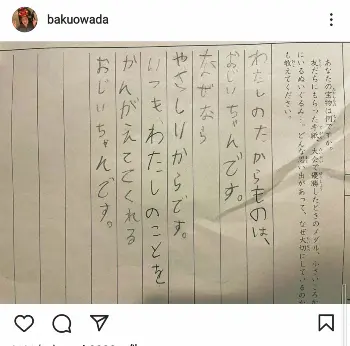 bakuowada
あなたの宝物は何ですか。
友だちにもらった手紙、大会で優勝したときのメダル、小さいころか
にいるぬいぐるみ…。どんな思い出があって、なぜ大切にしているのか
も教えてください。
わたしのたからものは、
おじいちゃんです。
なぜなら
やさしいからです。
いつもわたしのことを
かんがえてくれる
おじいちゃんです。